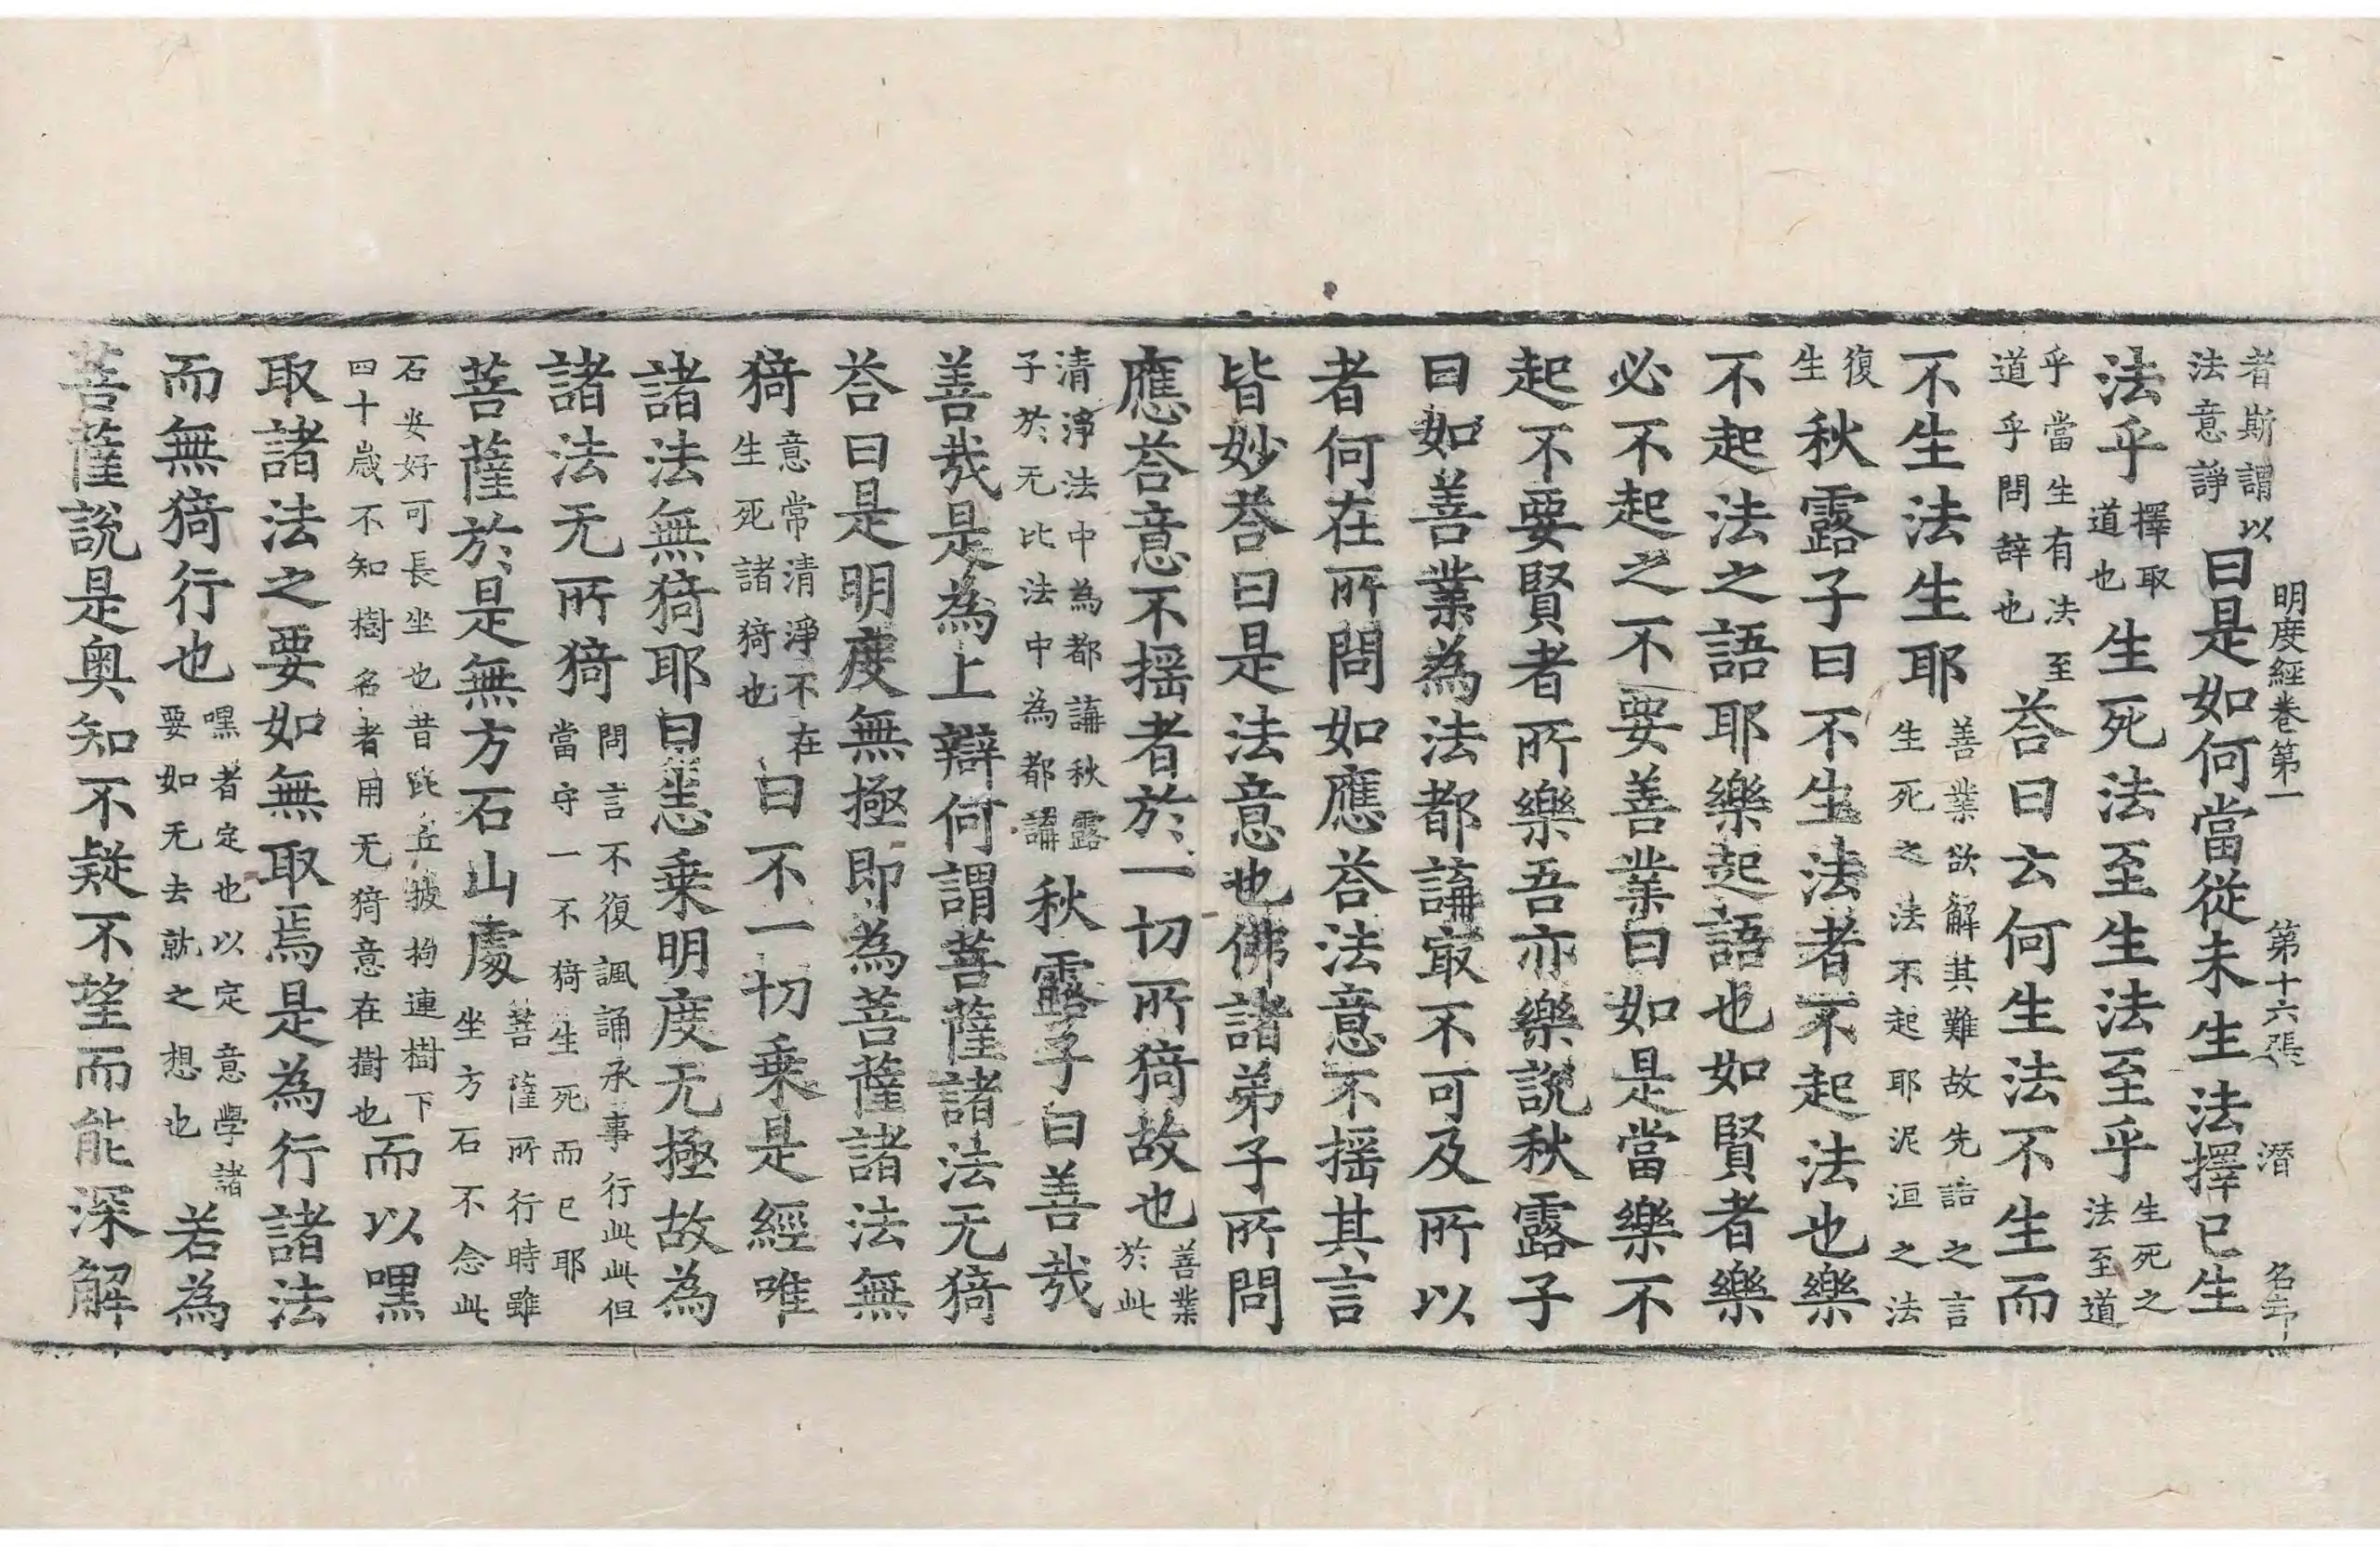 明度經卷第一　第十六張　潛　名中
者斯謂以法意諍曰是如何當從未生法擇已生
法乎擇取道也生死法至生法至乎生死之法至道
乎當生有法至道乎問辞也荅曰云何生法不生而
不生法生耶善業欲解其難故先詰之言生死之法不起耶泥洹之法
復生秋露子曰不生法者不起法也樂
不起法之語耶樂起語也如賢者樂
必不起之不要善業曰如是當樂不
起不要賢者所樂吾亦樂說秋露子
曰如善業為法都講㝡不可及所以
者何在所問如應荅法意不揺其言
皆妙荅曰是法意也佛諸弟子所問
應荅意不揺者於一切所猗故也善業於此
清淨法中為都講秋露子於无比法中為都講秋露子曰善㢤
善㢤是為上辯何謂菩薩諸法无猗
荅曰是明度無極即為菩薩諸法無
猗意常清淨不在生死諸猗也曰不一切乗是經唯
諸法無猗耶曰恙乗明度无極故為
諸法无所猗問言不復諷誦承事行此此但當守一不猗生死而已耶
菩薩於是無方石山處菩薩所行時雖坐方石不念此
石㛃好可長坐也昔比丘披拘連樹下四十歳不知樹名者用无猗意在樹也而以嘿
取諸法之要如無取焉是為行諸法
而無猗行也嘿者定也以定意學諸要如无去就之想也若為
菩薩說是奥知不疑不望而能深解